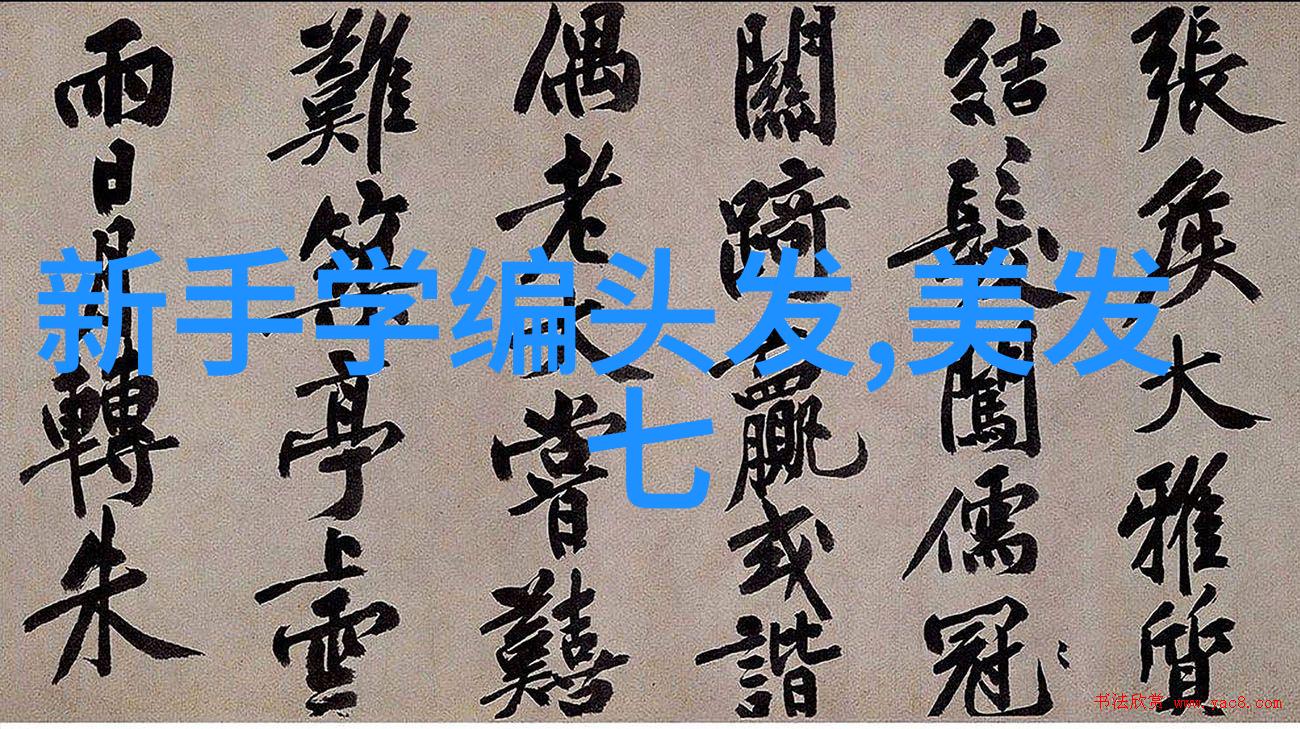 新手学编头发,美发
七
張矦大雅質
結髮闖儒冠
關踦羸或諧
偶老嘗囏
難亭上雲
雨日月轉朱
书法欣赏 www.yac8.com